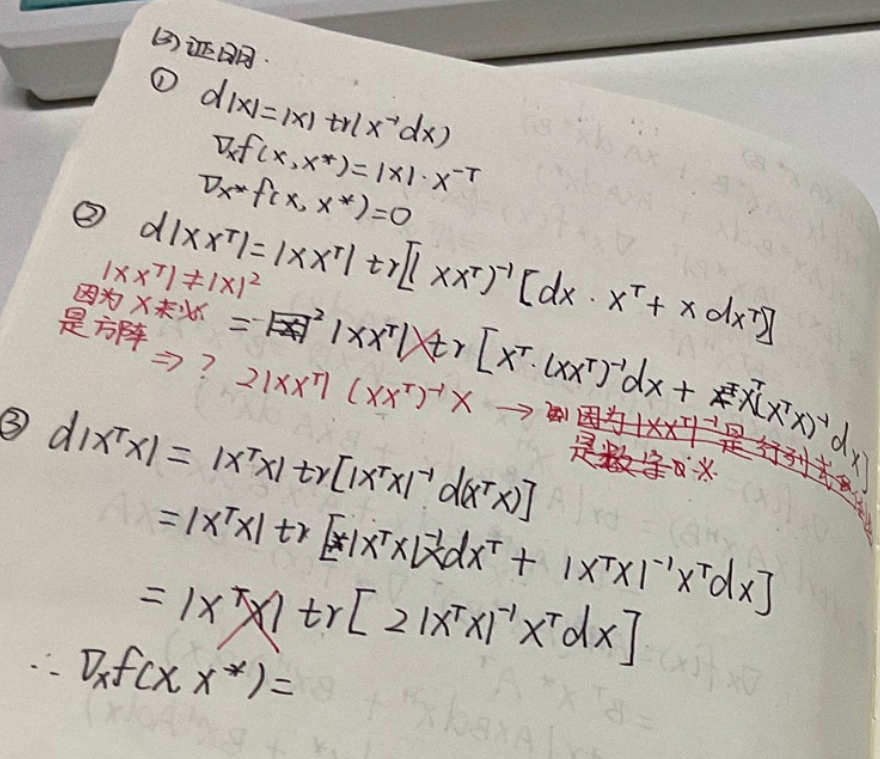 (3) 证明.
① d|X|=|X| tr(X⁻¹dX)
∇ₓf(X,X*)=|X|·X⁻ᵀ
∇ₓ*f(X,X*)=0
② d|XXᵀ|=|XXᵀ| tr[(XXᵀ)⁻¹[dX·Xᵀ+XdXᵀ]]
|XXᵀ|≠|X|²
因为X未必
是方阵
= ² |XXᵀ| tr[Xᵀ·(XXᵀ)⁻¹dX + Xᵀ(XᵀX)⁻¹dX]
⇒ ? 2|XXᵀ| (XXᵀ)⁻¹X → 因为|XXᵀ|⁻¹是行列式
是数字
③ d|XᵀX| = |XᵀX| tr[|XᵀX|⁻¹d(XᵀX)]
=|XᵀX| tr[|XᵀX|⁻¹XdXᵀ + |XᵀX|⁻¹XᵀdX]
= |XᵀX| tr[2|XᵀX|⁻¹XᵀdX]
∴ ∇ₓf(X,X*)=